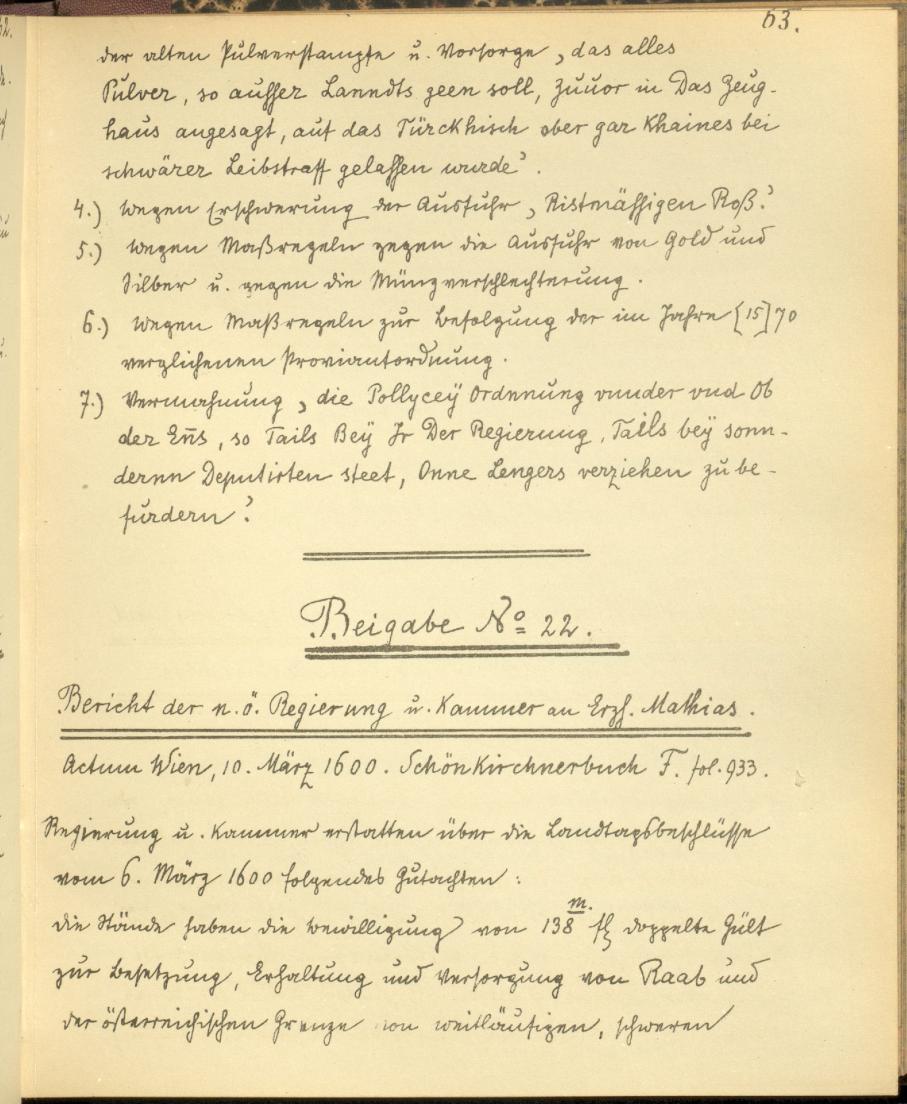 63.
der alten Pulverstampfe u. Vorsorge ‚das alles
Pulver, so ausser Lanndts geen soll, zuuor in Das Zeug-
haus angesagt, auf das Türckhisch ober gar Khaines bei
schwärer Leibstraff gelassen wurde‘.
4.) wegen Erschwerung der Ausfuhr ‚Ristmässigen Roß‘.
5.) wegen Maßregeln gegen die Ausfuhr von Gold und
Silber u. gegen die Münzverschlechterung.
6.) wegen Maßregeln zur Befolgung der im Jahre [15]70
verglichenen Proviantordnung.
7.) Vermahnung, ‚die Pollyceÿ Ordnnung vnnder vnd Ob
der Enns, so Tails Beÿ Jr Der Regierung, Tails bey sonn-
dernn Deputirten steet, Onne Lengers verziehen zu be-
fürdern‘.
Beigabe No 22.
Bericht der n.ö. Regierung u. Kammer an Erzh. Mathias.
Actum Wien, 10. März 1600. Schönkirchnerbuch F. fol. 933.
Regierung u. Kammer erstatten über die Landtagsbeschlüsse
vom 6. März 1600 folgendes Gutachten:
die Stände haben die Bewilligung von 138 m. fl doppelte Gült
zur Besetzung, Erhaltung und Versorgung von Raab und
der österreichischen Grenze von weitläufigen, schweren